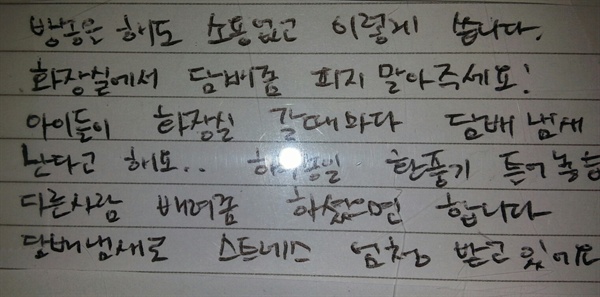 방송은 해도 소용없고 이렇게 씁니다.
화장실에서 담배좀 피지 말아주세요!
아이들이 화장실 갈때마다 담배 냄새
난다고 해요.. 하루종일 환풍기 틀어놓음
다른사람 배려좀 하셨으면 합니다
담배냄새로 스트레스 엄청 받고 있어요